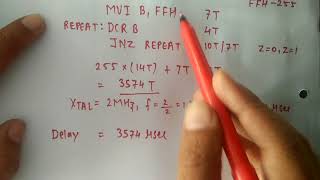 FFH-255
MVI B, FFH 7T
REPEAT: DCR B 4T
JNZ REPEAT 10T/7T Z=0, Z=1
255 x (14T) + 7T
= 3574T
XTAL = 2MHz, f = 2/2 =
Delay = 3574 μsec